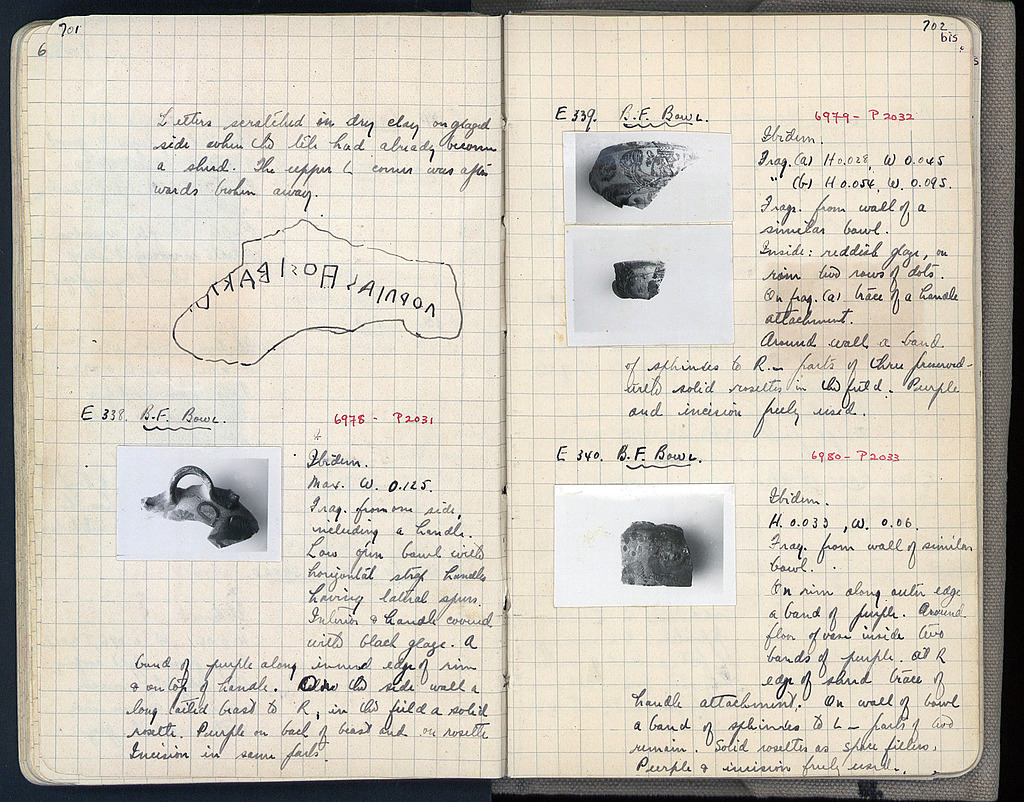 701
6
Letters scratched in dry clay on glazed
side when the tile had already become
a sherd. The upper L corner was after
wards broken away.
E 338. B.F. Bowl.
6978 - P2031
Ibidem.
Max. W. 0.125.
Frag. from one side,
including a handle.
Low open bowl with
horizontal strap handles
having lateral spurs.
Interior & handle covered
with black glaze. A
band of purple along inner edge of rim
& on top of handle. On the side wall a
long tailed beast to R, in the field a solid
rosette. Purple on back of beast and on rosette
Incision in some parts.
702
bis
E 339. B.F. Bowl.
6979 - P2032
Ibidem.
Frag. (a) H 0.028, W 0.045
" (b) H 0.054, W. 0.095.
Frags. from wall of a
similar bowl.
Inside: reddish glaze, on
rim two rows of dots.
On frag. (a) trace of a handle
attachment.
Around wall a band
of sphinxes to R. - parts of three preserved -
with solid rosettes in the field. Purple
and incision freely used.
E 340. B.F. Bowl.
6980 - P2033
Ibidem.
H. 0.033, W. 0.06.
Frag. from wall of similar
bowl.
On rim along outer edge
a band of purple. Around
floor of vase inside two
bands of purple. At R
edge of sherd trace of
handle attachment. On wall of bowl
a band of sphinxes to L - parts of two
remain. Solid rosettes as space fillers.
Purple & incision freely used.